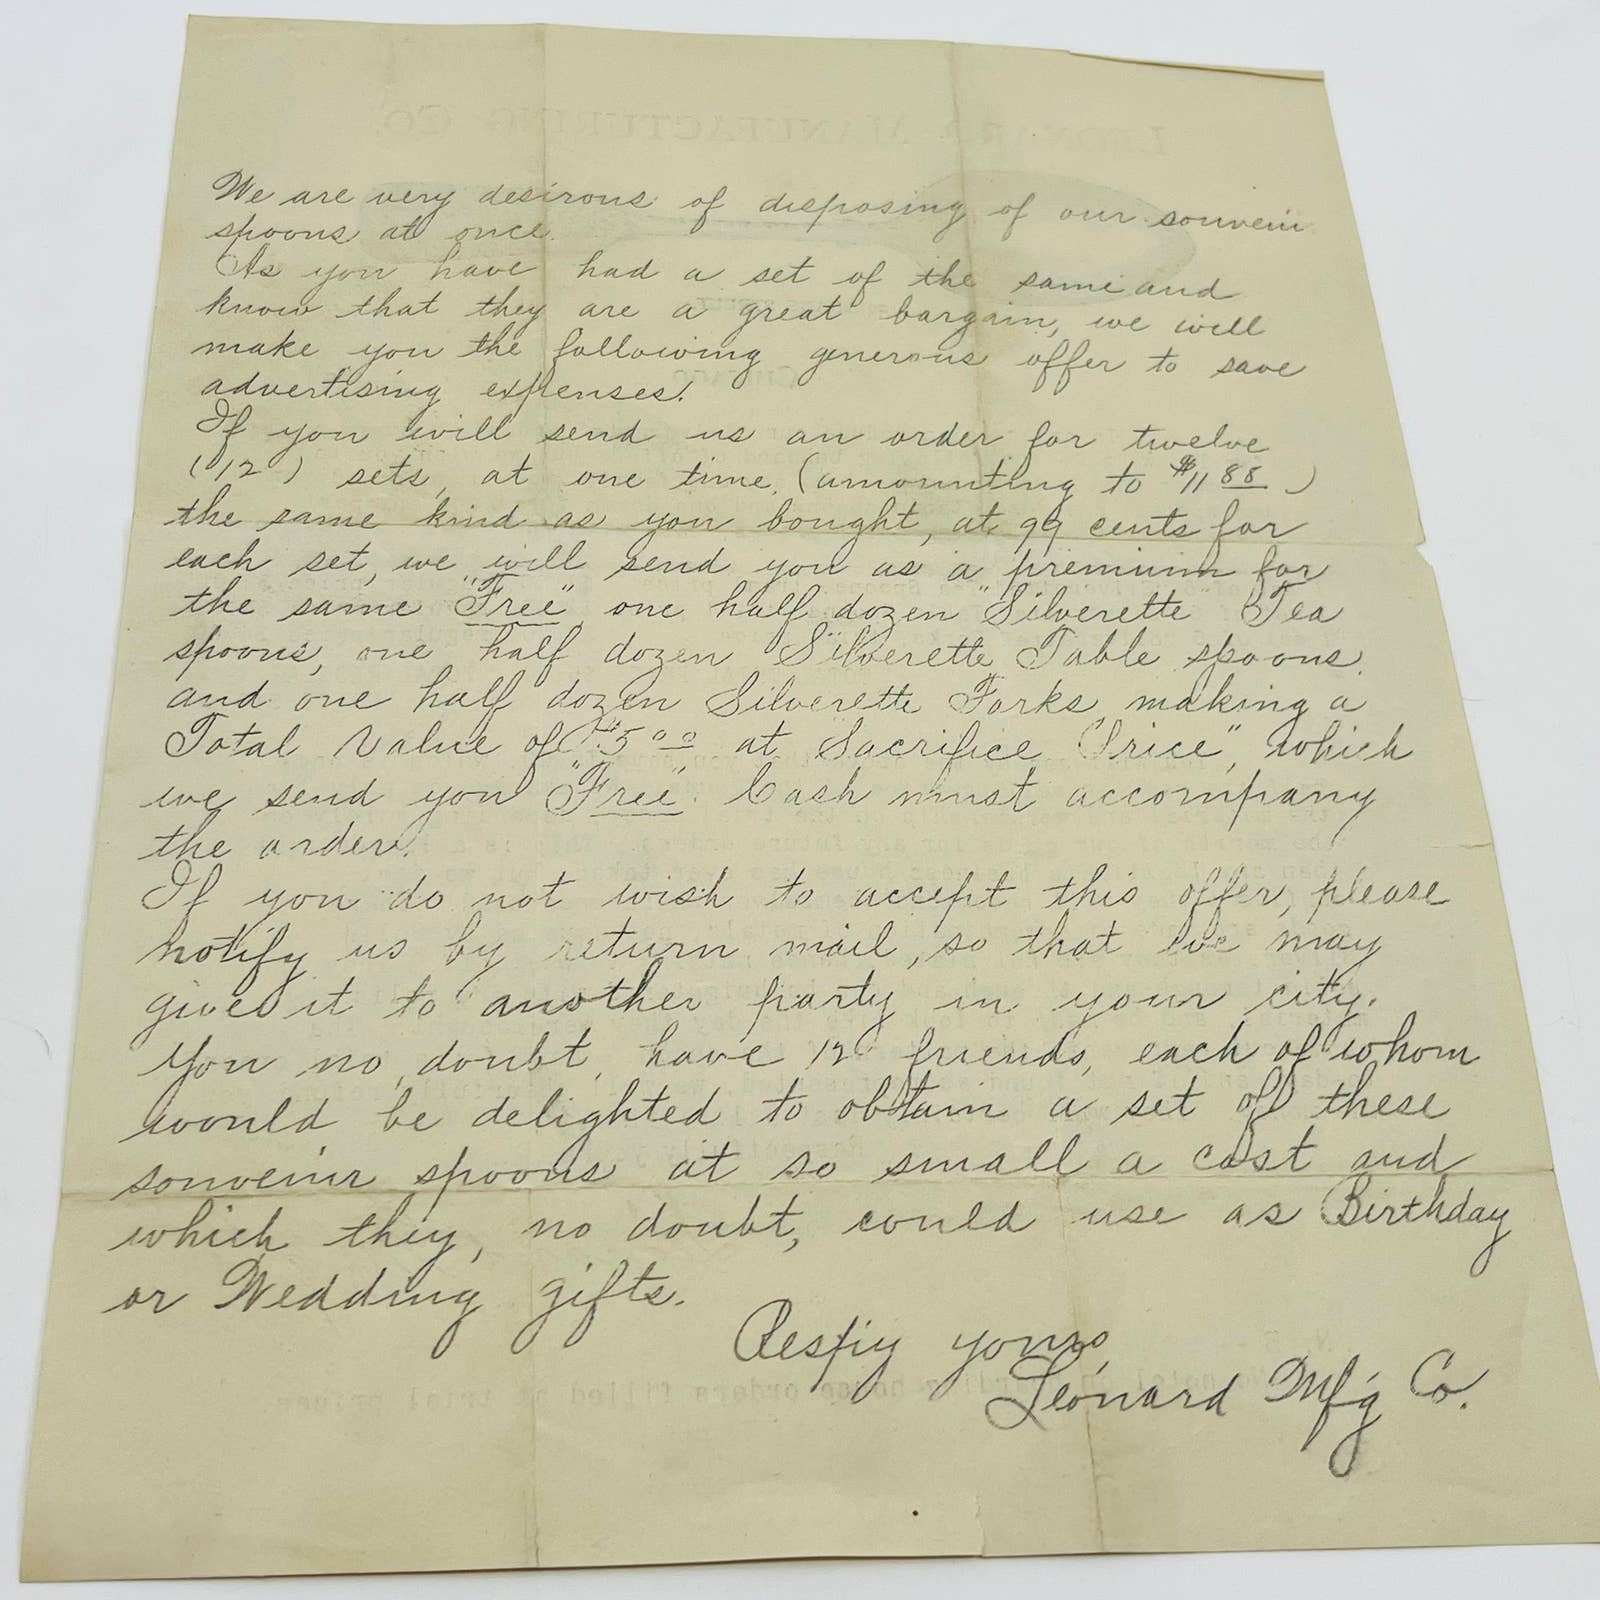 We are very desirous of disposing of our souvenir
spoons at once.
As you have had a set of the same and
know that they are a great bargain, we will
make you the following generous offer to save
advertising expenses.
If you will send us an order for twelve
(12) sets, at one time, (amounting to $11 88)
the same kind as you bought, at 99 cents for
each set, we will send you as a premium for
the same "Free" one half dozen "Silverette" Tea
spoons, one half dozen "Silverette" Table spoons
and one half dozen Silverette Forks, making a
Total Value of $5 00 at "Sacrifice Price", which
we send you "Free". Cash must accompany
the order.
If you do not wish to accept this offer, please
notify us by return mail, so that we may
give it to another party in your city.
You no doubt, have 12 friends, each of whom
would be delighted to obtain a set of these
souvenir spoons at so small a cost and
which they, no doubt, could use as Birthday
or Wedding gifts.
Respy yours,
Leonard Mfg Co.